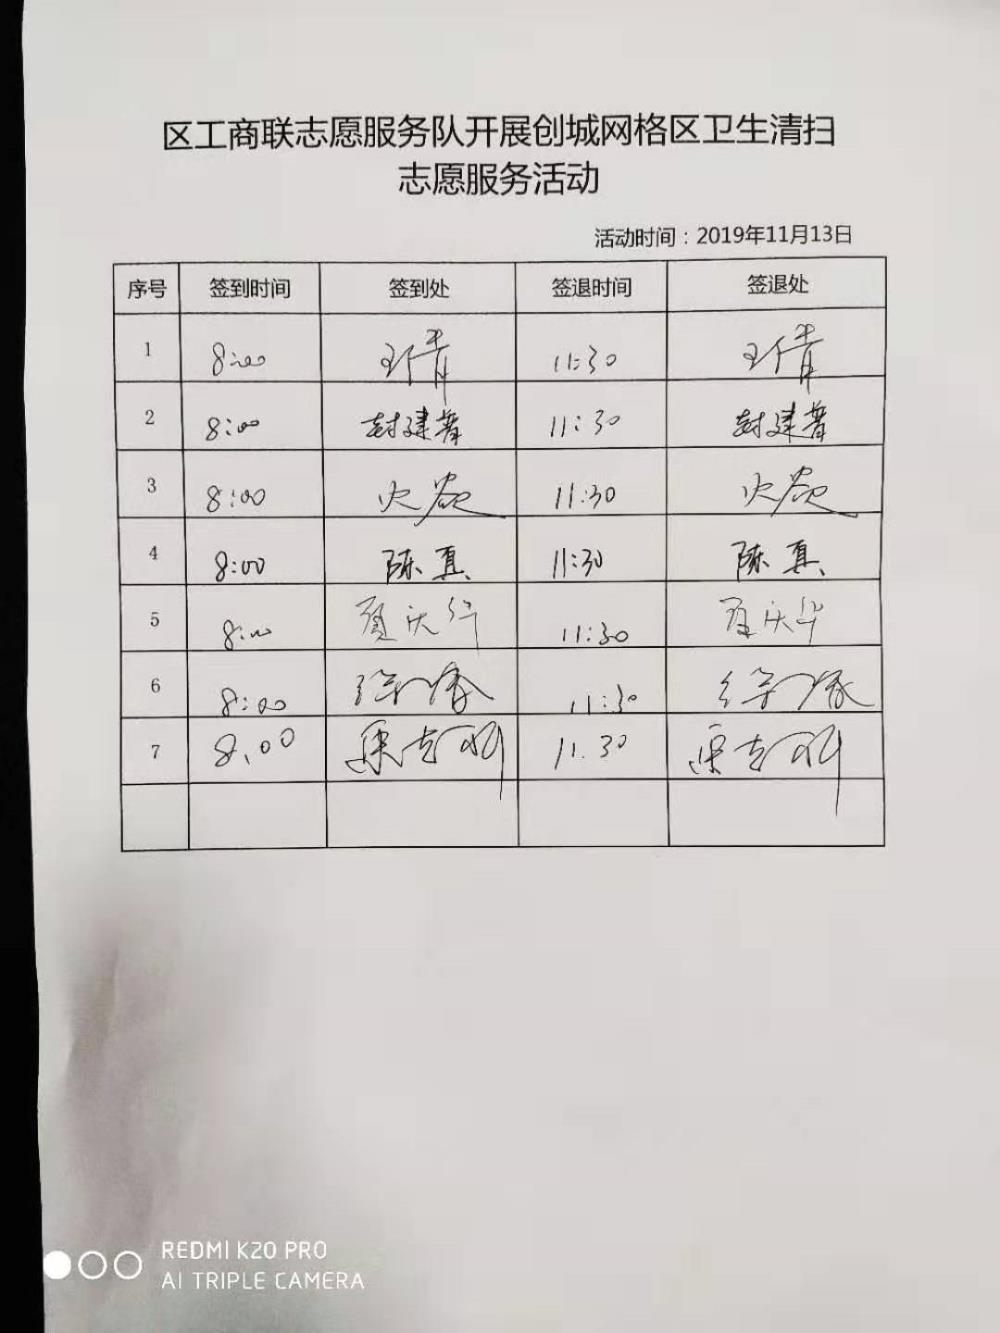 区工商联志愿服务队开展创城网格区卫生清扫
志愿服务活动
活动时间：2019年11月13日
序号 签到时间 签到处 签退时间 签退处
1 8:00 王倩 11:30 王倩
2 8:00 封建 11:30 封建
3 8:00 11:30
4 8:00 陈真 11:30 陈真
5 8:00 贾庆华 11:30 贾庆华
6 8:00 11:30
7 8.00 11.30
REDMI K20 PRO
AI TRIPLE CAMERA